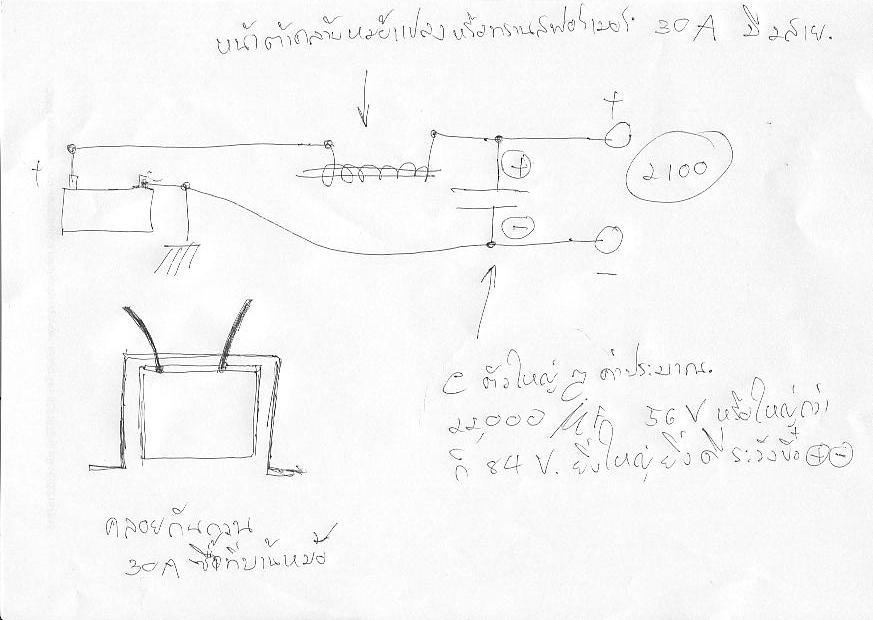 หน้าตาคล้ายหม้อแปลงหรือทรานสฟอร์เมอร์ 30A มี 2 สาย.
+
+
-
+
2100
-
-
C ตัวใหญ่ๆ ค่าประมาณ.
22,000 µF 56V หรือใหญ่กว่า
ก็ 84V. ยิ่งใหญ่ยิ่งดี ระวังขั้ว + -
คลอยกันกวน
30A ซื้อที่บ้านหม้อ